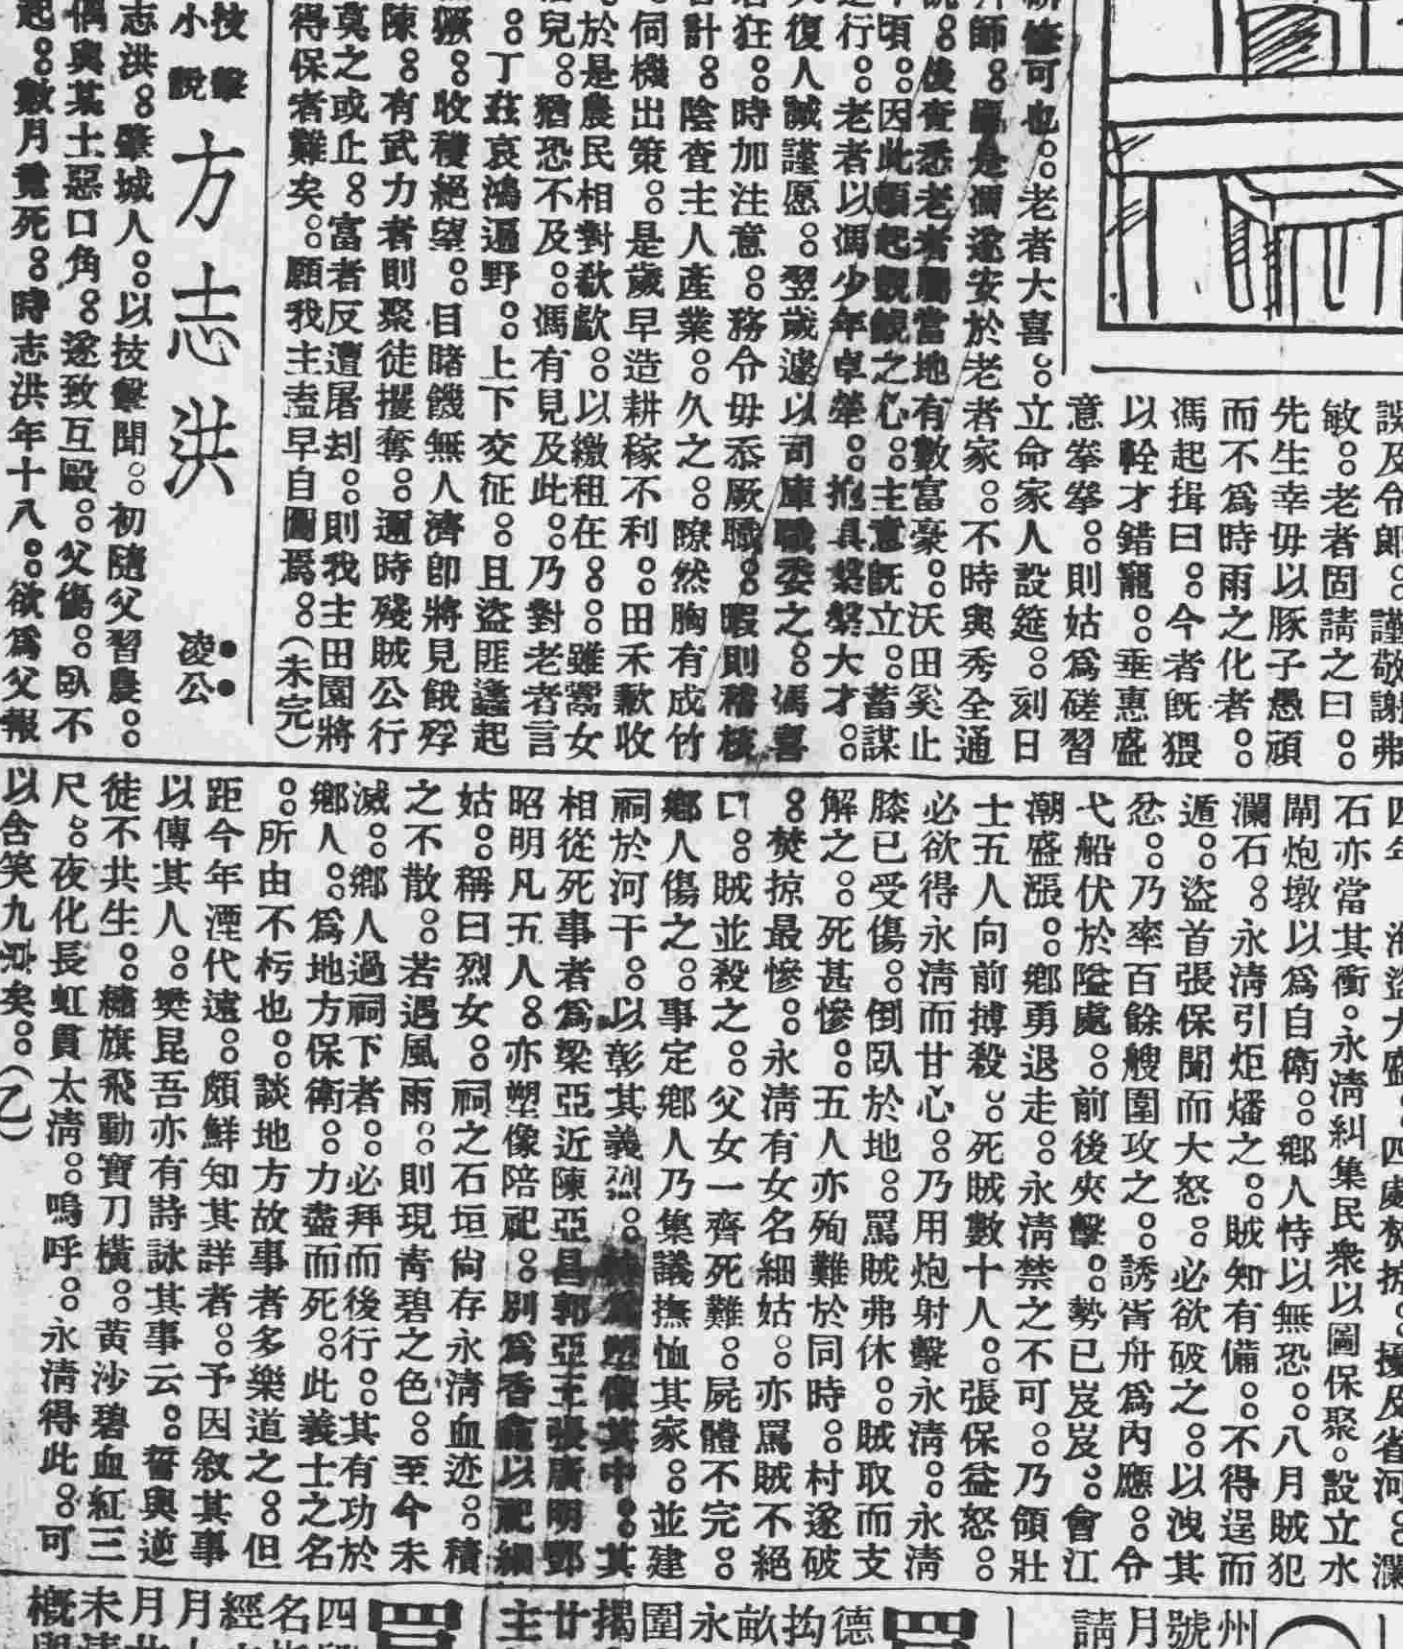 誤及令郎。謹敬謝弗
敏。老者固請之曰。
先生幸毋以豚子愚頑
而不爲時雨之化者。
馮起揖曰。今者旣猥
以輇才錯寵。垂惠盛
意拳拳。則姑爲磋習
修可也。老者大喜。立命家人設筵。刻日
師。是馮遂安於老者家。不時與秀全通
。後查悉老者屬當地有數富豪。沃田奚止
頃。因此頓起覬覦之心。主意旣立。蓄謀
行。老者以馮少年卓犖。抱具槃槃大才。
復人誠謹愿。翌歲遽以司庫職委之。馮喜
狂。時加注意。務令毋忝厥職。暇則稽核
計。陰查主人產業。久之。瞭然胸有成竹
。伺機出策。是歲早造耕稼不利。田禾歉收
。於是農民相對欷歔。以繳租在。雖鬻女
兒。猶恐不及。馮有見及此。乃對老者言
。丁茲哀鴻遍野。上下交征。且盜匪蠭起
獗。收穫絕望。目睹饑無人濟卽將見餓殍
陳。有武力者則聚徒攫奪。邇時殘賊公行
莫之或止。富者反遭屠刦。則我主田園將
得保者難矣。願我主盍早自圖焉。(未完)
技擊
小說
方志洪
凌公
志洪。肇城人。以技擊聞。初隨父習農。
偶與某土惡口角。遂致互毆。父傷。臥不
起。數月竟死。時志洪年十八。欲爲父報
四年 海盜大盛。四處焚掠。擾及省河。瀾
石亦當其衝。永淸糾集民衆以圖保聚。設立水
閘炮墩以爲自衛。鄉人恃以無恐。八月賊犯
瀾石。永淸引炬燔之。賊知有備。不得逞而
遁。盜首張保聞而大怒。必欲破之。以洩其
忿。乃率百餘艘圍攻之。誘胥舟爲內應。令
弋船伏於隘處。前後夾擊。勢已岌岌。會江
潮盛漲。鄉勇退走。永淸禁之不可。乃領壯
士五人向前搏殺。死賊數十人。張保益怒。
必欲得永淸而甘心。乃用炮射擊永淸。永淸
膝已受傷。倒臥於地。罵賊弗休。賊取而支
解之。死甚慘。五人亦殉難於同時。村遂破
。焚掠最慘。永淸有女名細姑。亦罵賊不絕
口。賊並殺之。父女一齊死難。屍體不完。
鄉人傷之。事定鄉人乃集議撫恤其家。並建
祠於河干。以彰其義烈。特爲塑像其中。其
相從死事者爲梁亞近陳亞昌郭亞王張廣明鄧
昭明凡五人。亦塑像陪祀。別爲香龕以祀細
姑。稱曰烈女。祠之石垣尙存永淸血迹。積
之不散。若遇風雨。則現靑碧之色。至今未
滅。鄉人過祠下者。必拜而後行。其有功於
鄉人。爲地方保衛。力盡而死。此義士之名
。所由不朽也。談地方故事者多樂道之。但
距今年湮代遠。頗鮮知其詳者。予因敘其事
以傳其人。樊昆吾亦有詩詠其事云。誓與逆
徒不共生。繡旗飛動寶刀橫。黃沙碧血紅三
尺。夜化長虹貫太淸。嗚呼。永淸得此。可
以含笑九泉矣。(乙)
州
號
月
請
買
德
拘
畝
永
圍
揭
廿
主
買
四
名
經
月
月
未
概